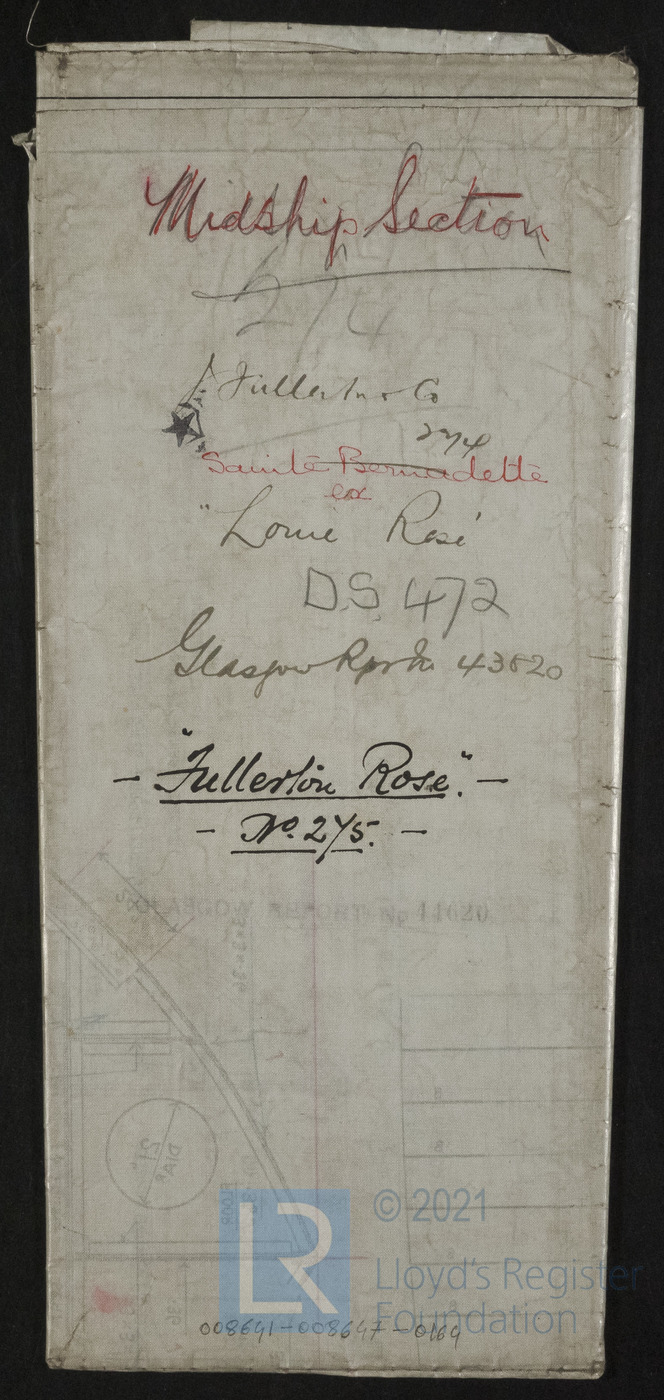 Midship Section
274
J. Fullerton & Co
274
Sainte Bernadette
ex
"Louie Rose"
D.S. 472
Glasgow Rpt No 43820
- "Fullerton Rose". -
- No. 275. -
GLASGOW REPORT No 44620
DIA R
FLOOR
© 2021
LR
Lloyd's Register
Foundation
008641-008647-0164